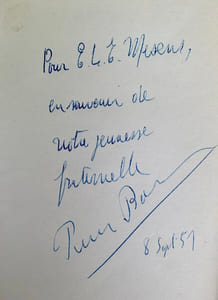 Pour E. L. T. Mesens,
en souvenir de
notre jeunesse
fraternelle
8 Sept. 51